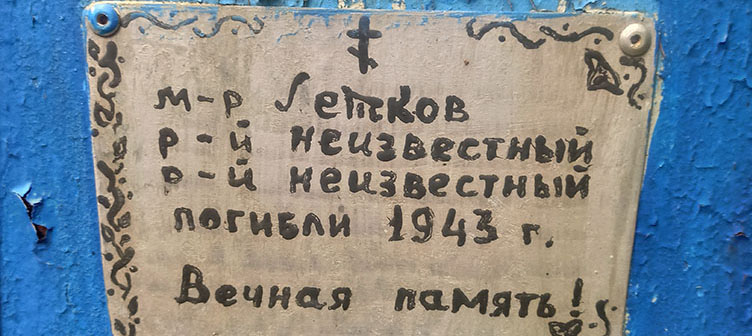 м-р Летков
р-й неизвестный
р-й неизвестный
погибли 1943 г.
Вечная память!